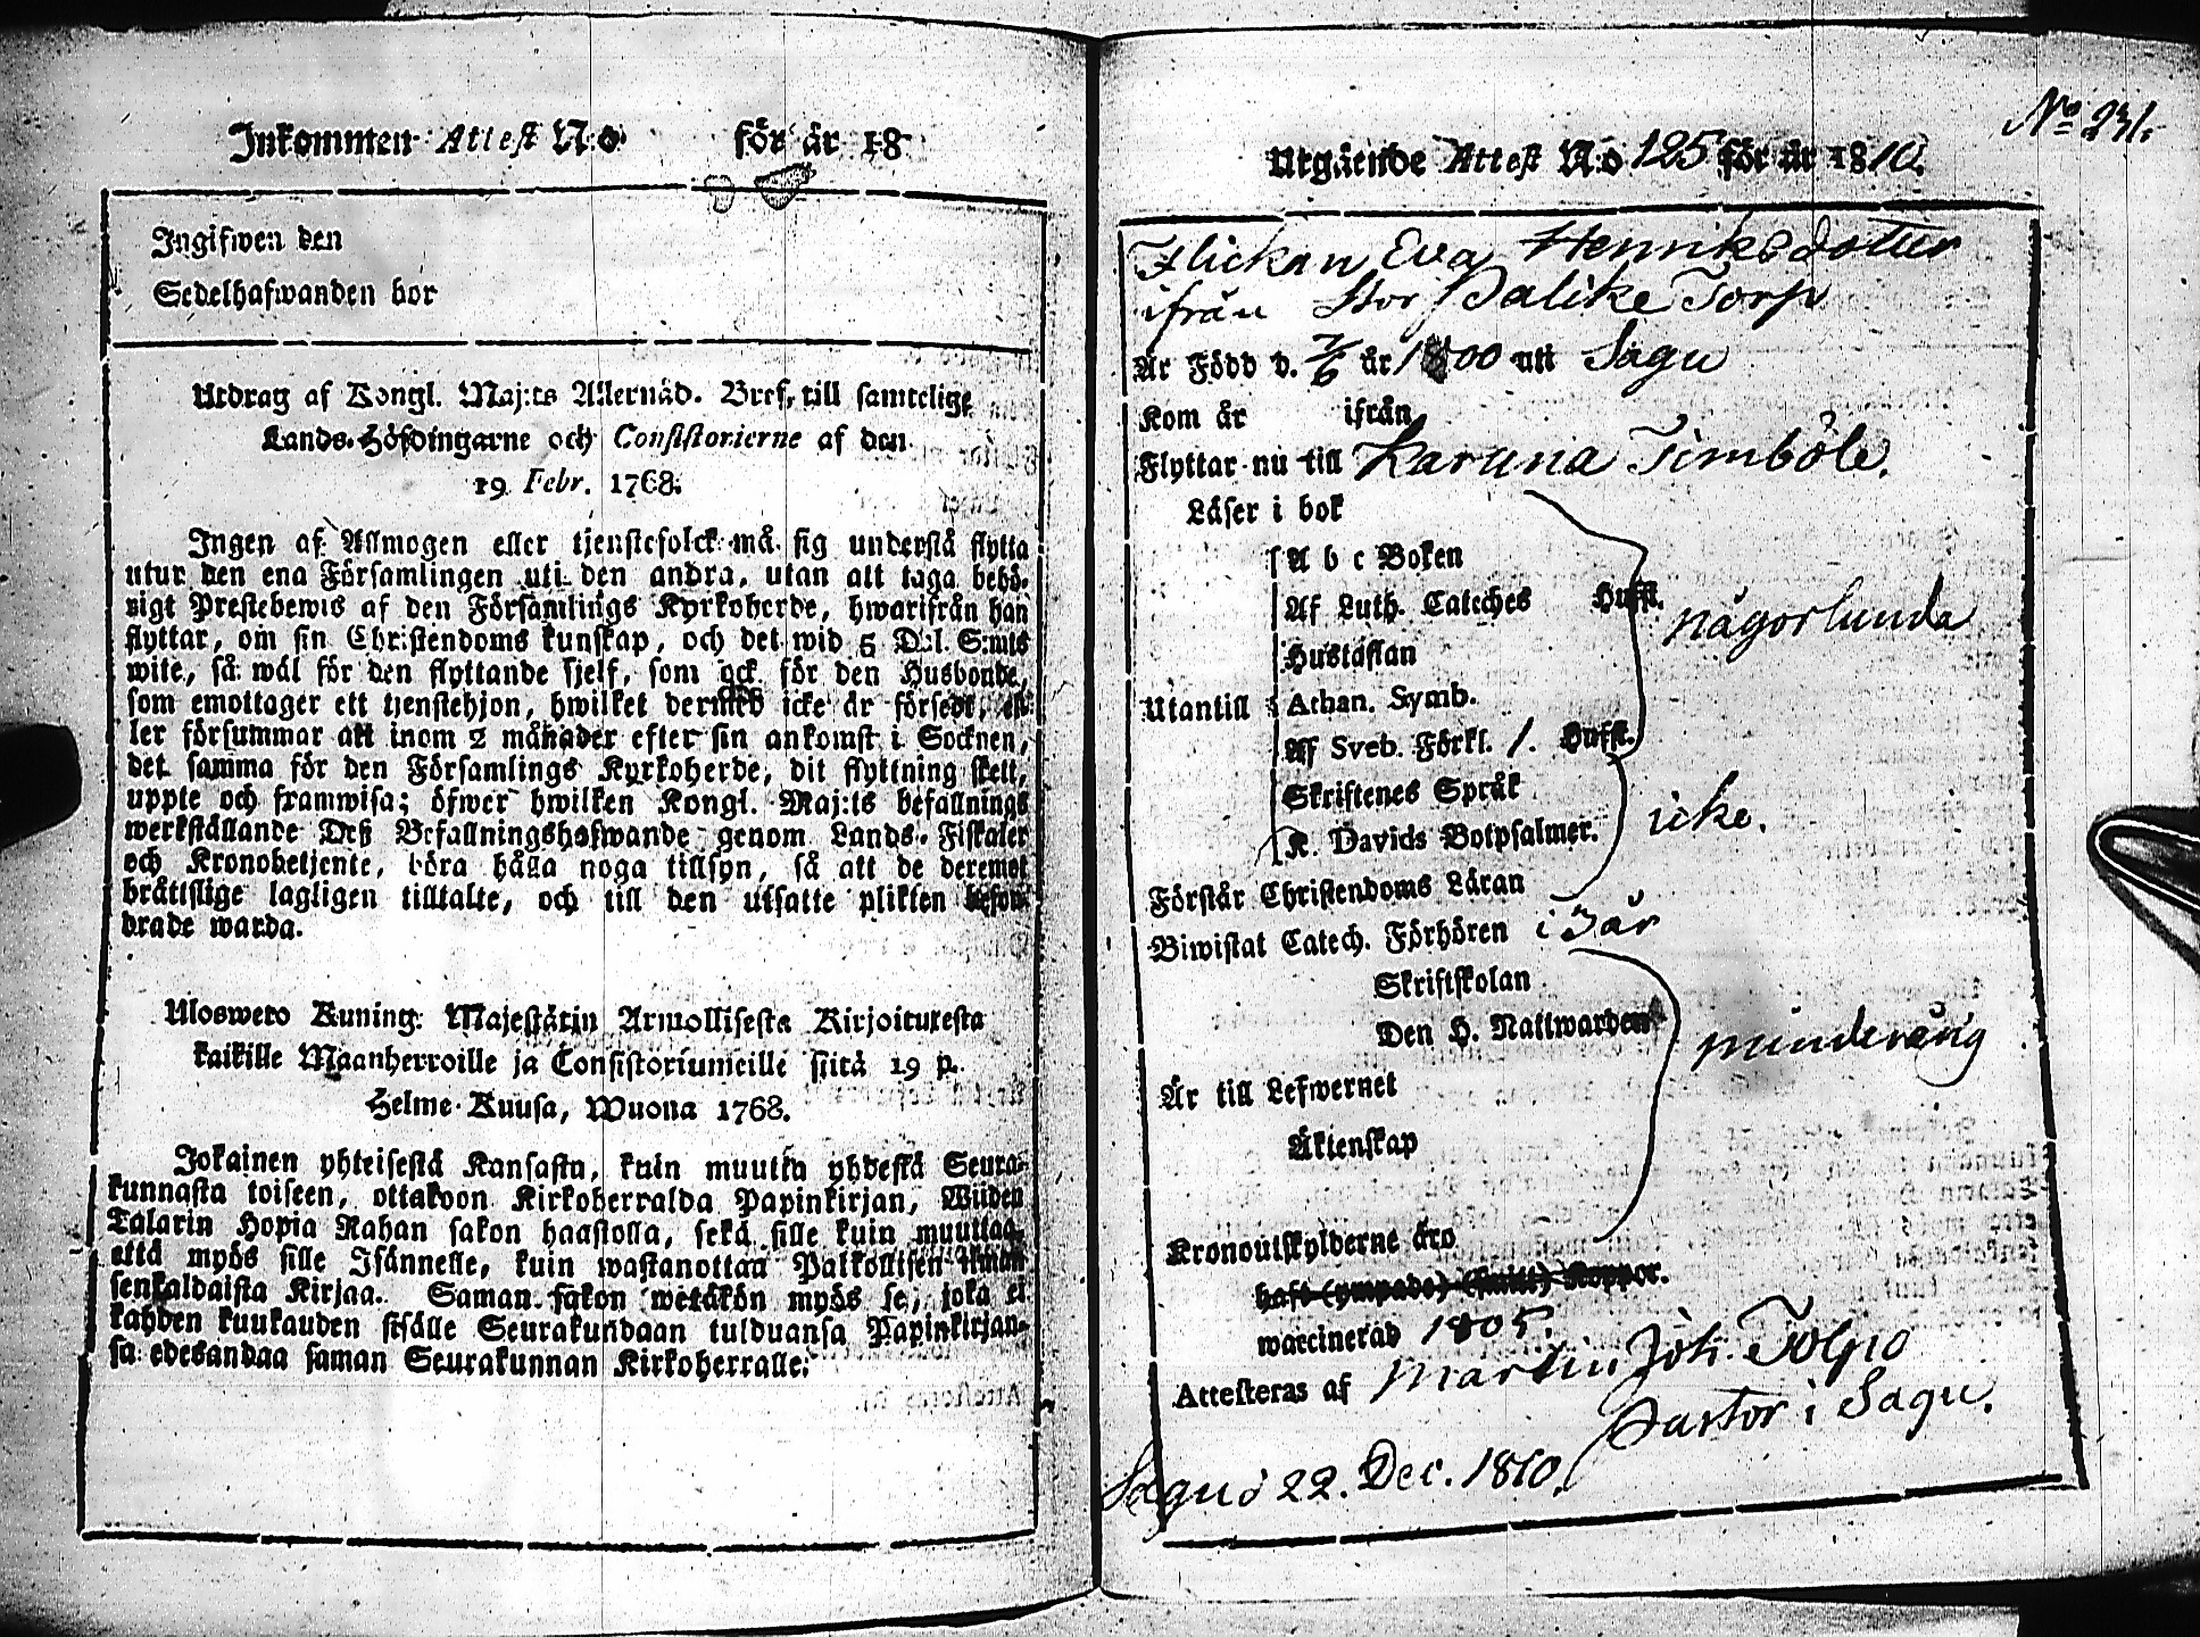 Inkommen Attest N:o för år 18
Ingifwen den
Sedelhafwanden bor
Utdrag af Kongl. Maj:ts Allernåd. Bref, till samtelige
Lands-Höfdingarne och Consistorierne af den
19 Febr. 1768.
Ingen af Allmogen eller tjenstefolck må sig understå flytta
utur den ena Församlingen uti den andra, utan att taga behö-
rigt Prestebewis af den Församlings Kyrkoherde, hwarifrån han
flyttar, om sin Christendoms kunskap, och det wid 5 Dal. S:mts
wite, så wäl för den flyttande sjelf, som ock för den Husbonde,
som emottager ett tjenstehjon, hwilket dermed icke är försedt, el-
ler försummar att inom 2 månader efter sin ankomst i Socknen,
det samma för den Församlings Kyrkoherde, dit flyttning skett,
uppte och framwisa; öfwer hwilken Kongl. Maj:ts befallnings
werkställande Deß Befallningshafwande genom Lands-Fiskaler
och Kronobetjente, böra hålla noga tillsyn, så att de deremot
bråttslige lagligen tilltalte, och till den utsatte plikten befor-
drade warda.
Uloswero Kuning: Majestätin Armollisesta Kirjoituxesta
kaikille Maanherroille ja Consistoriumeille siitä 19 p.
Helme-Kuusa, Wuona 1768.
Jokainen yhteisestä Kansasta, kuin muutta yhdestä Seura-
kunnasta toiseen, ottakoon Kirkoherralda Papinkirjan, Wiiden
Talarin Hopia Rahan sakon haastolla, sekä sille kuin muuttaa,
että myös sille Isännelle, kuin wastanottaa Palkollisen ilman
senkaldaista Kirjaa. Saman sakon wetäkön myös se, joka ei
kahden kuukauden sisälle Seurakundaan tulduansa Papinkirjan-
sa edesandaa saman Seurakunnan Kirkoherralle.
No 231.
Utgående Attest N:o 125 för år 1810.
Flickan Eva Henriksdotter
ifrån Stor Palike Torp
Är Född d. 7/6 år 1800 uti Sagu
Kom år ifrån
Flyttar nu till Karuna Timböle.
Läser i bok
A b c Boken
Af Luth. Cateches Hufst. någorlunda
Hustaflan
Utantill Athan. Symb.
Af Sveb. Förkl. 1. Hufst.
Skriftenes Språk
K. Davids Botpsalmer. icke.
Förstår Christendoms Läran
Biwistat Catech. Förhören i 3 år
Skriftskolan
Den H. Nattwarden minderårig
Är till Lefwernet
Äktenskap
Kronoutskylderne äro
haft (ympade) (smitt) Koppor.
waccinerad 1805.
Attesteras af Martin Joh. Tolpo
Pastor i Sagu.
Sagu d 22. Dec. 1810.